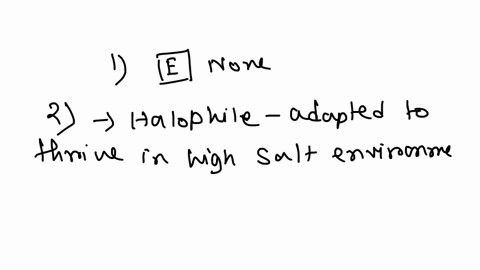 1) E None
2) → Halophile - adapted to
thrive in high salt environme